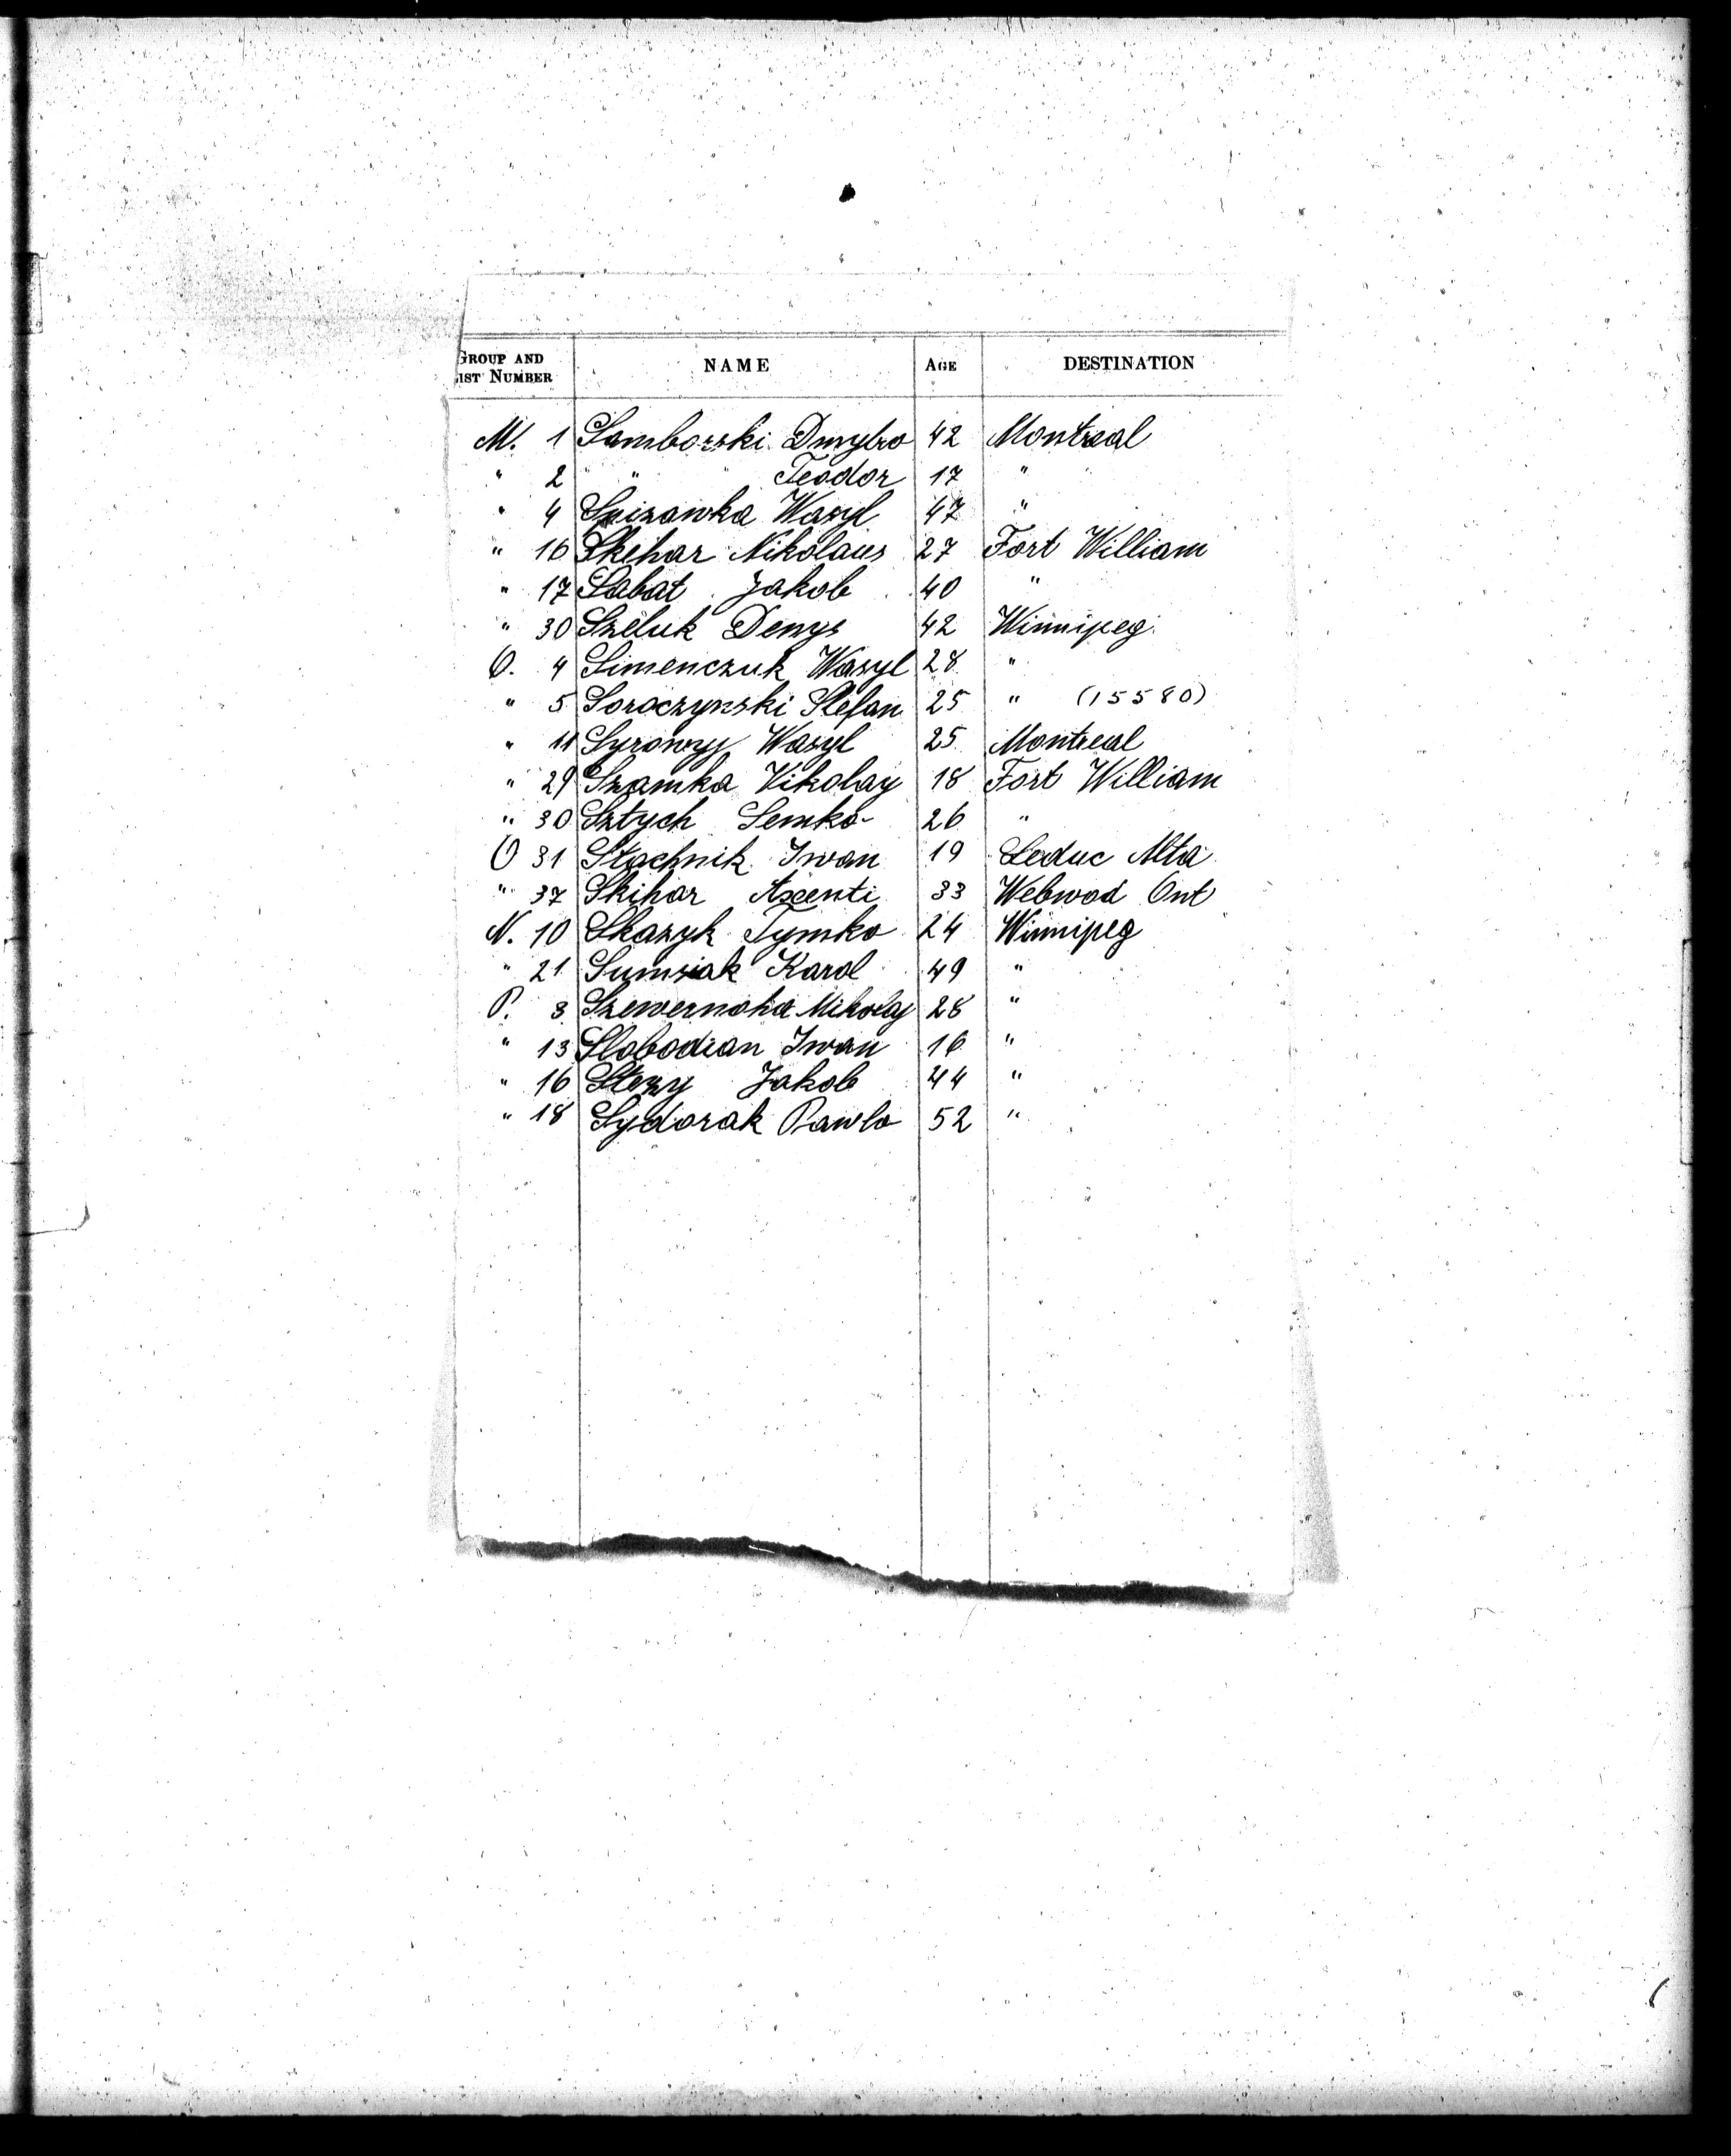 GROUP AND NAME AGE DESTINATION
IST NUMBER
M. 1 Samborski Dmytro 42 Montreal
" 2 " " Teodor 17 "
" 4 Spizawka Wasyl 47 "
" 16 Skehar Nikolaus 27 Fort William
" 17 Sabat Jakob 40 "
" 30 Szeluk Denys 42 Winnipeg
O. 4 Simenczuk Wasyl 28 "
" 5 Soroczynski Stefan 25 " (15580)
" 11 Syrowyj Wasyl 25 Montreal
" 29 Szamka Nikolay 18 Fort William
" 30 Sztych Semko 26 "
O 31 Stachnik Iwan 19 Leduc Alta
" 37 Skihar Axenti 33 Webwod Ont
N. 10 Skazyk Tymko 24 Winnipeg
" 21 Sumsiak Karol 49 "
P. 3 Szewernoha Mikolaj 28 "
" 13 Slobodian Iwan 16 "
" 16 Stezy Jakob 44 "
" 18 Sydorak Pawlo 52 "